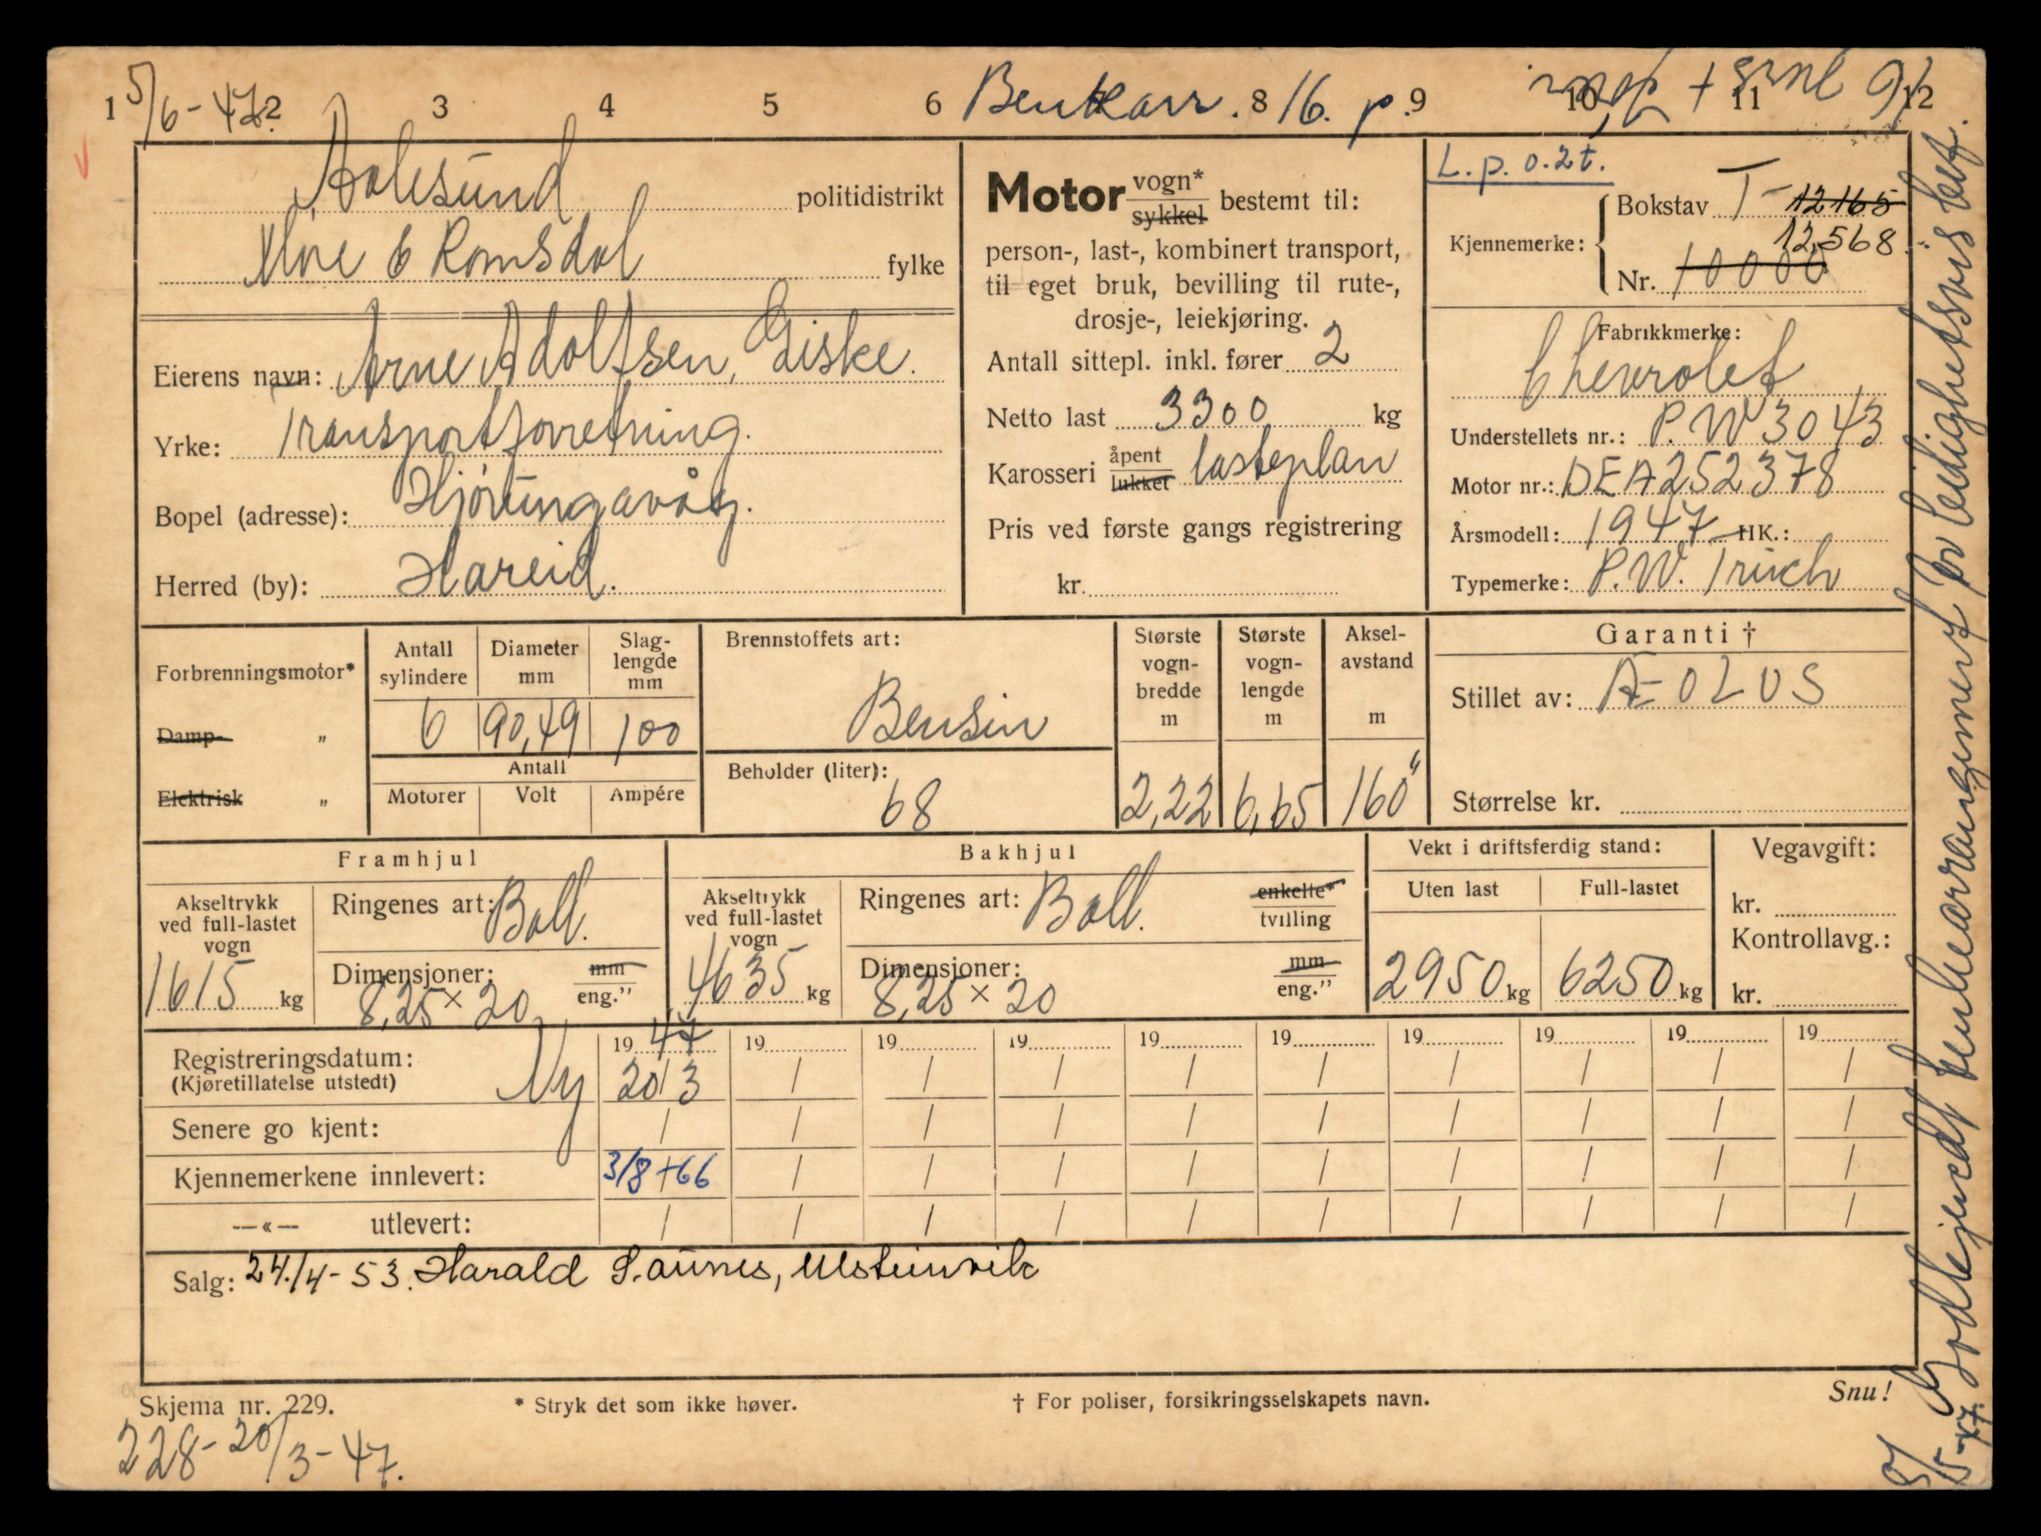 1 2 3 4 5 6 7 8 9 10 11 12
5/6-47. Benkarr. 16. p.
Aalesund politidistrikt
Møre & Romsdal fylke
Eierens navn: Arne Adolfsen, Giske.
Yrke: Transportforretning.
Bopel (adresse): Hjørungavåg.
Herred (by): Hareid.
Motor vogn* sykkel bestemt til:
person-, last-, kombinert transport,
til eget bruk, bevilling til rute-,
drosje-, leiekjøring.
Antall sittepl. inkl. fører 2
Netto last 3300 kg
Karosseri åpent lukket lasteplan
Pris ved første gangs registrering
kr.
L.p. o.2t.
Kjennemerke: Bokstav T- 12165
12,568
Nr. 10000
Fabrikkmerke:
Chevrolet
Understellets nr.: P.W 3043
Motor nr.: DEA252378
Årsmodell: 1947 HK.:
Typemerke: P.W. Truck
Forbrenningsmotor*
Damp- „
Elektrisk „
Antall sylindere 6
Diameter mm 90,49
Slag-lengde mm 100
Antall
Motorer Volt Ampére
Brennstoffets art:
Bensin
Beholder (liter):
68
Største vogn-bredde m 2,22
Største vogn-lengde m 6,65
Aksel-avstand m 160"
Garanti †
Stillet av: ÆOLUS
Størrelse kr.
Framhjul
Akseltrykk ved full-lastet vogn 1615 kg
Ringenes art: Ball.
Dimensjoner: mm eng."
8,25 × 20
Bakhjul
Akseltrykk ved full-lastet vogn 4635 kg
Ringenes art: Ball. enkelte* tvilling
Dimensjoner: mm eng."
8,25 × 20
Vekt i driftsferdig stand:
Uten last Full-lastet
2950 kg 6250 kg
Vegavgift:
kr.
Kontrollavg.:
kr.
Registreringsdatum: Ny 19 47 19 19 19 19 19 19 19 19 19
(Kjøretillatelse utstedt) 20/3 / / / / / / / / /
Senere go kjent: / / / / / / / / / /
Kjennemerkene innlevert: 3/8-66 / / / / / / / / /
—«— utlevert: / / / / / / / / / /
Salg: 24./4-53. Harald S. aunes, Ulsteinvik
Skjema nr. 229.
* Stryk det som ikke høver.
† For poliser, forsikringsselskapets navn.
Snu!
228-20/3-47.
5-47. Godkjendt benkearrangement for leilighetsvis bef.